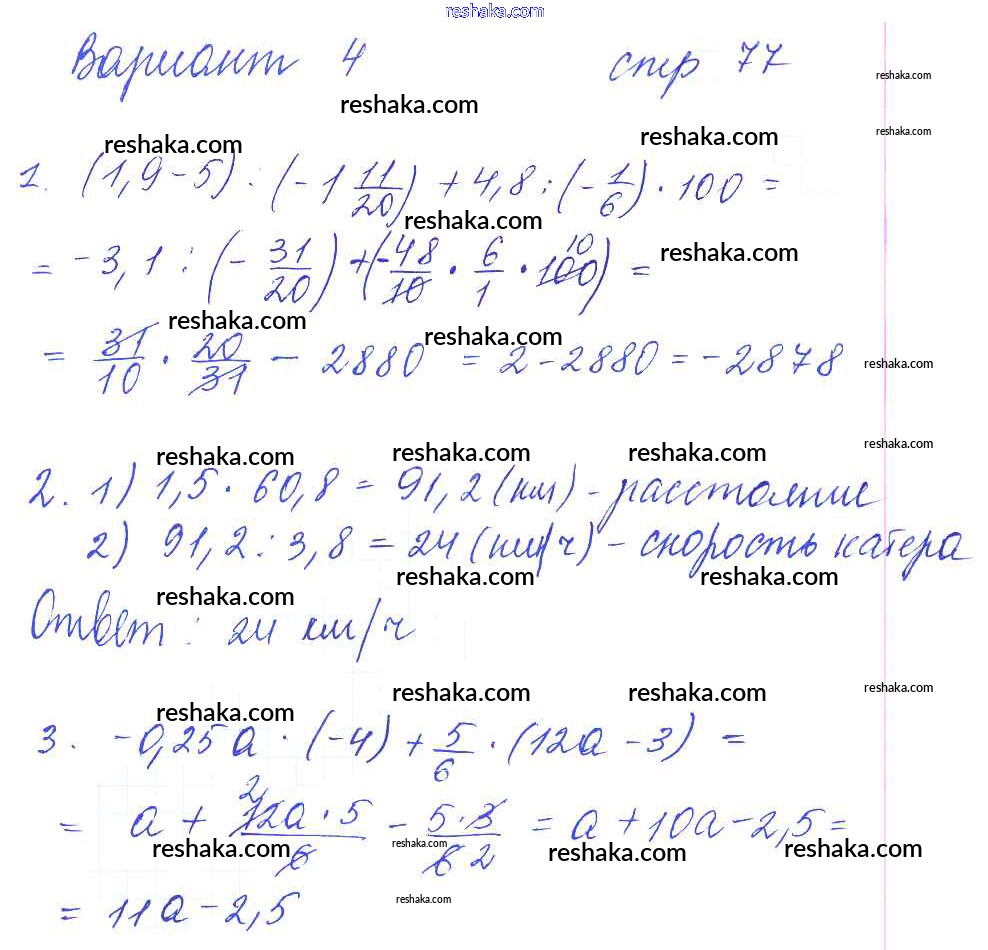 reshaka.com
Вариант 4 стр 77
reshaka.com
reshaka.com reshaka.com reshaka.com
reshaka.com
1. (1,9-5) : (-1 11/20) + 4,8 : (-1/6) · 100 =
reshaka.com
= -3,1 : (-31/20) + (-48/10 · 6/1 · 100 10) = reshaka.com
reshaka.com reshaka.com
= 31/10 · 20/31 - 2880 = 2 - 2880 = -2878 reshaka.com
reshaka.com reshaka.com reshaka.com reshaka.com
2. 1) 1,5 · 60,8 = 91,2 (км) - расстояние
2) 91,2 : 3,8 = 24 (км/ч) - скорость катера
reshaka.com reshaka.com
reshaka.com
Ответ : 24 км/ч
reshaka.com reshaka.com reshaka.com
reshaka.com
3. -0,25a · (-4) + 5/6 · (12a - 3) =
= a + 2 12a · 5/6 - 5·3/6 2 = a + 10a - 2,5 =
reshaka.com reshaka.com reshaka.com reshaka.com
= 11a - 2,5 reshaka.com